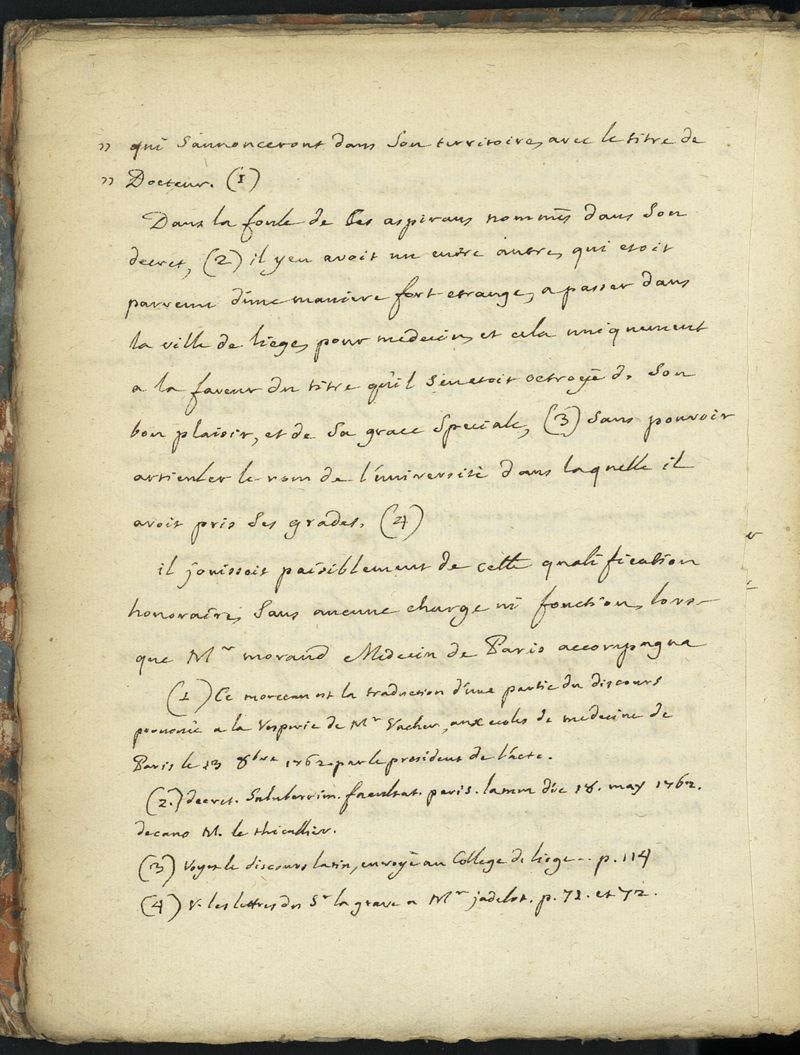 » qui s'annonceront dans son territoire, avec le titre de
» Docteur. (1)
Dans la foule de ces aspirans nommés dans son
decret, (2) il y en avoit un entre autre, qui etoit
parvenu d'une maniere fort etrange, a passer dans
la ville de liege, pour medecin, et cela uniquement
a la faveur du titre qu'il s'en etoit octroyé d. son
bon plaisir, et de sa grace speciale, (3) sans pouvoir
articuler le nom de l'université dans laquelle il
avoit pris ses grades. (4)
il jouissoit paisiblement de cette qualification
honoraire, sans aucune charge ni fonction, lors-
que Mr morand Medecin de Paris accompagna
(1) Ce morceau est la traduction d'une partie du discours
prononcé a la Vesperie de Mr Vacher, aux ecoles de medecine de
Paris le 13 8bre 1762. par le president de l'acte.
(2.) decret. Saluberrim. facultat. paris. lamm die 18. may 1762.
decano M. le thieullier.
(3) Voyez le discours latin, envoyé au College de liege -- p. 114
(4) V. les lettres du Sr la grave a Mr jadelot. p. 71. et 72.